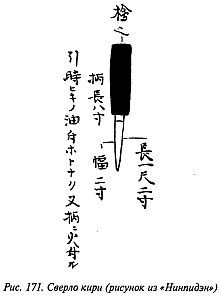 長一尺二寸
幅二寸
柄長八寸
引時ヒキノ油ホトナリ又柄ニ火
Рис. 171. Сверло кири (рисунок из «Нинпидэн»)